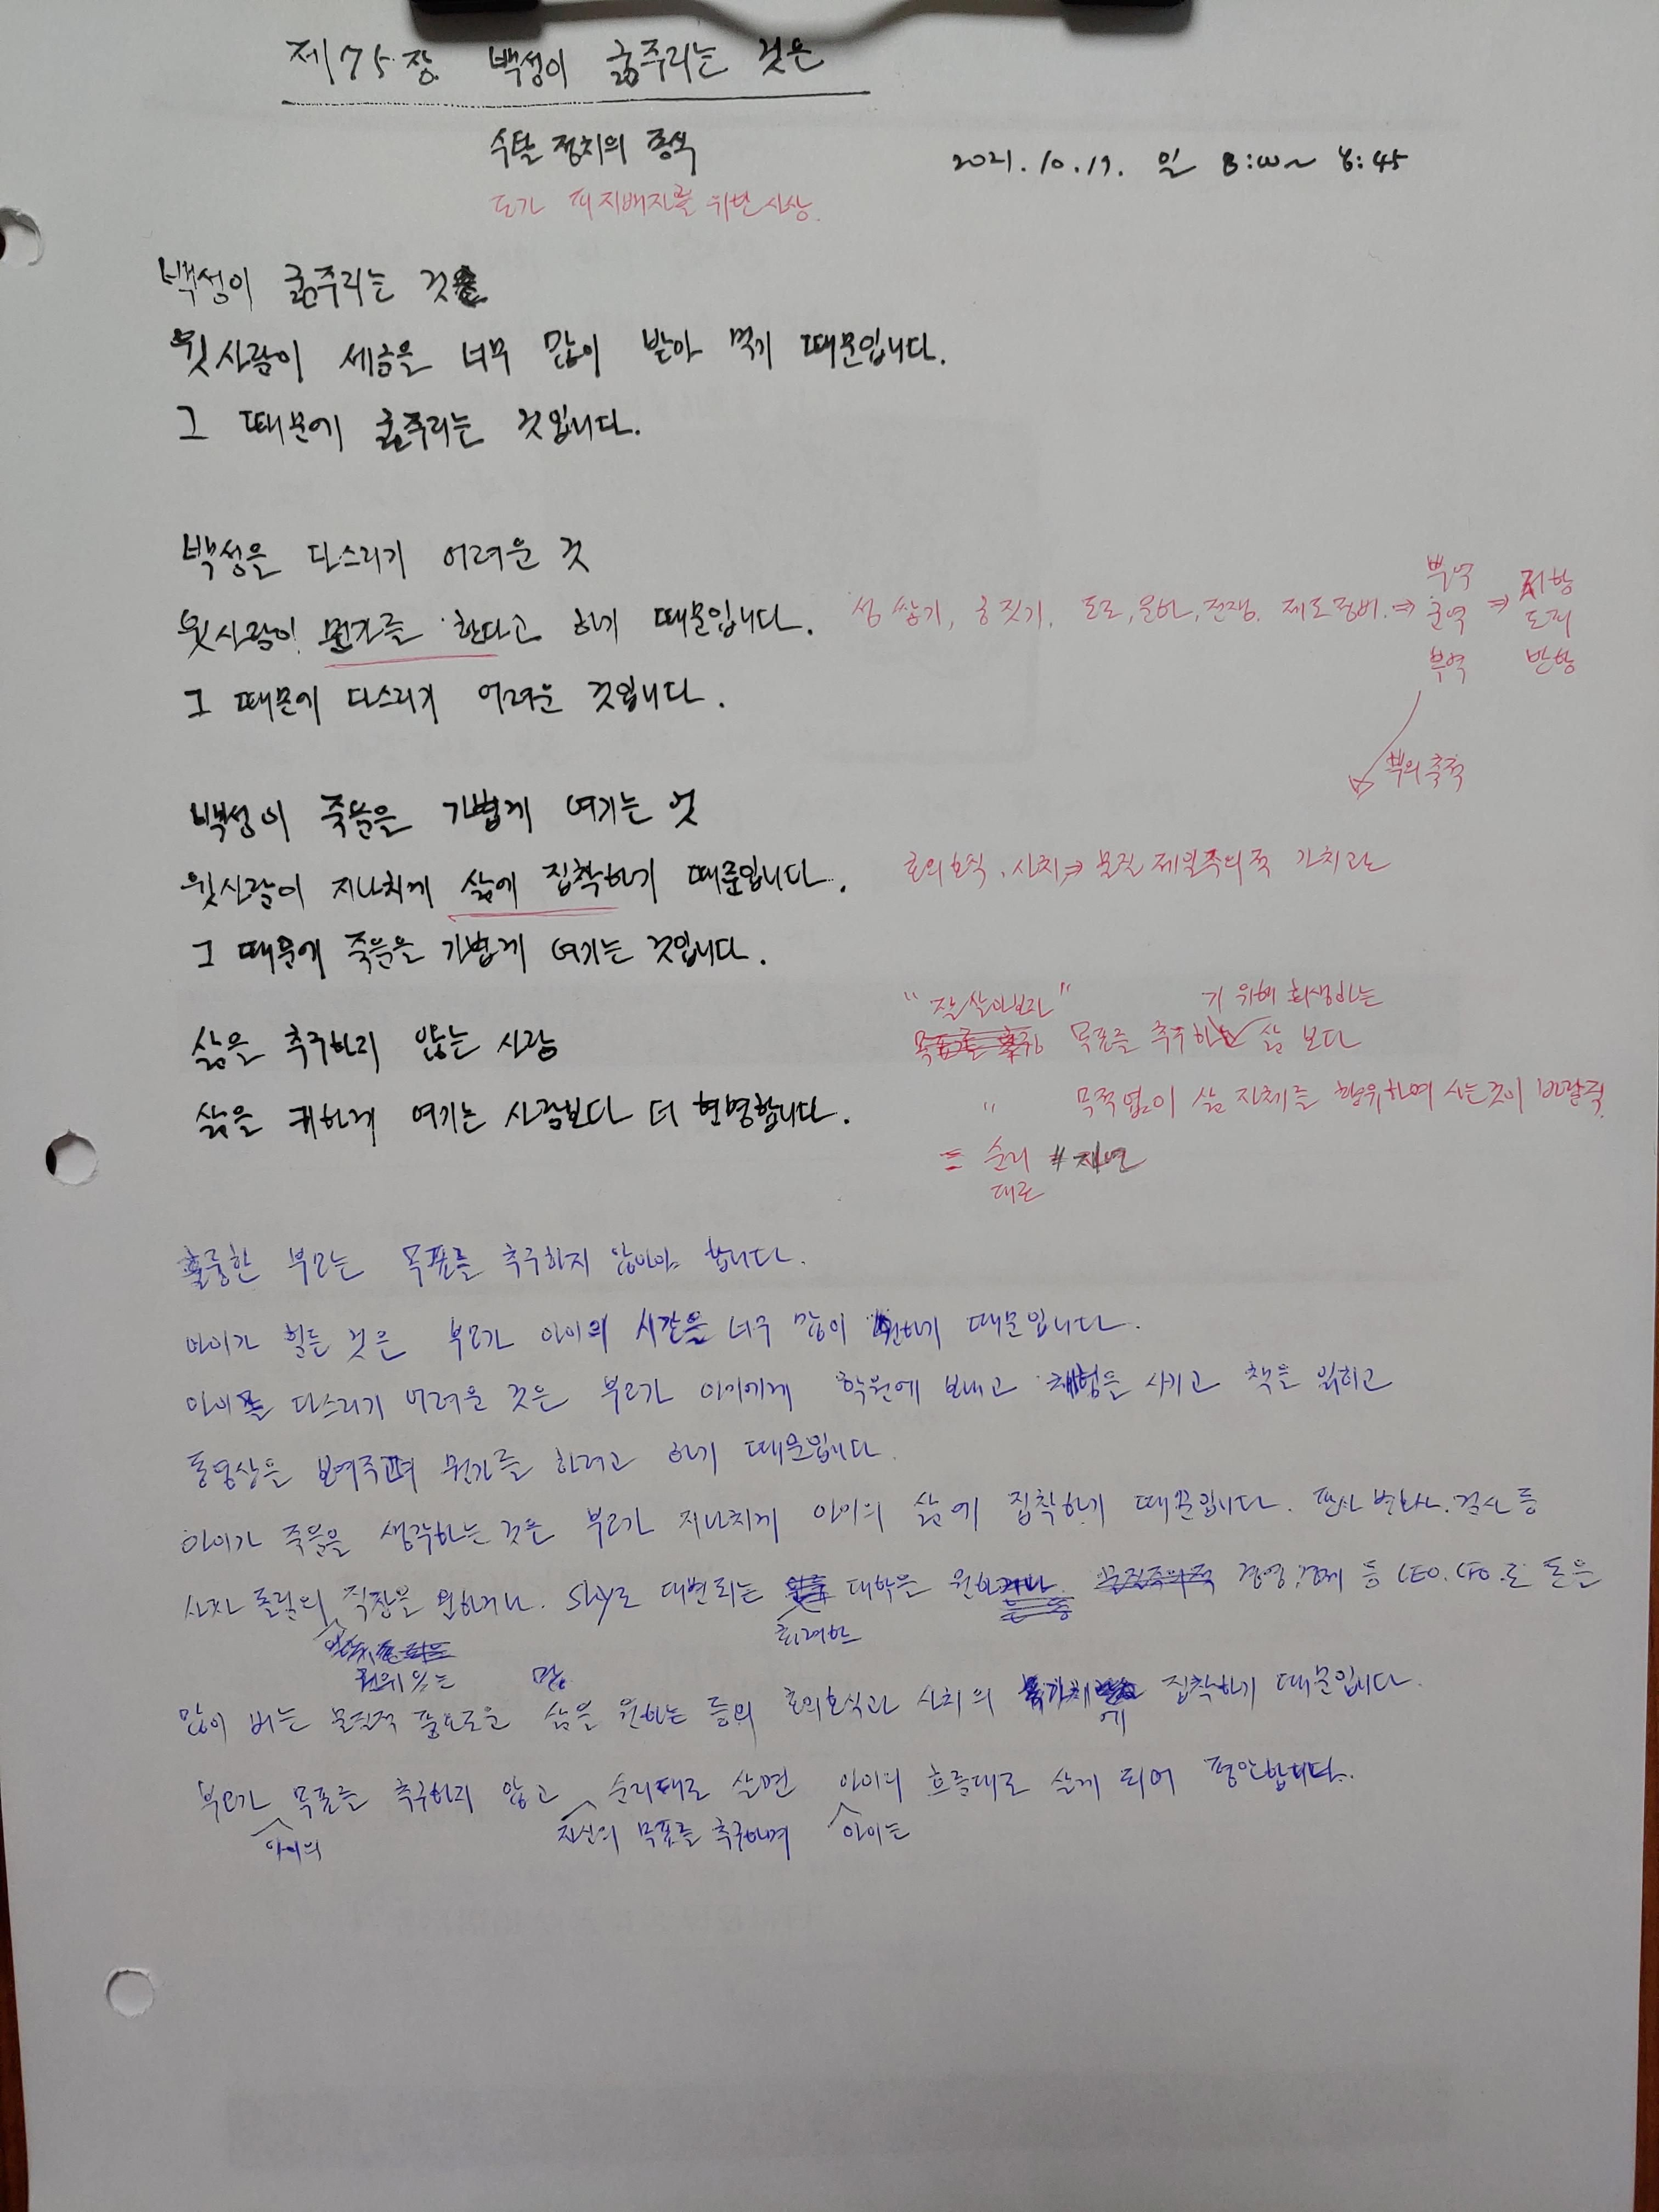 제75장 백성이 굶주리는 것은
수탈 정치의 종식
2021. 10. 17. 일 8:00~ 8:45
도가 피지배자를 위한 사상.
백성이 굶주리는 것
윗사람이 세금을 너무 많이 받아 먹기 때문입니다.
그 때문에 굶주리는 것입니다.
백성을 다스리기 어려운 것
윗사람이 뭔가를 한다고 하기 때문입니다.
성 쌓기, 궁 짓기, 도로, 운하, 전쟁. 제도정비. ⇒
부역
군역 ⇒
부역
저항
도피
반항
그 때문에 다스리기 어려운 것입니다.
부의 축적
백성이 죽음을 가볍게 여기는 것
윗사람이 지나치게 삶에 집착하기 때문입니다.
호의호식. 사치 ⇒ 물질 제일주의적 가치관
그 때문에 죽음을 가볍게 여기는 것입니다.
"잘 살아보자" 기 위해 희생하는
목표를 추구하 삶 보다
삶을 추구하지 않는 사람
삶을 귀하게 여기는 사람보다 더 현명합니다.
" 목적 없이 삶 자체를 향유하며 사는 것이 바람직.
= 순리
대로
훌륭한 부모는 목표를 추구하지 않아야 합니다.
아이가 힘든 것은 부모가 아이의 시간을 너무 많이 원하기 때문입니다.
아이를 다스리기 어려운 것은 부모가 아이에게 학원에 보내고 체험을 시키고 책을 읽히고
동영상을 보여주며 뭔가를 하려고 하기 때문입니다.
아이가 죽음을 생각하는 것은 부모가 지나치게 아이의 삶에 집착하기 때문입니다. 판사 변호사. 검사 등
사자 돌림의 직장을 원하거나. sky로 대변되는 대학을 원하 경영, 경제 등 CEO. CFO.로 돈을
권위 있는
화려한
많이 버는 물질적 풍요로운 삶을 원하는 등의 호의호식과 사치의 에 집착하기 때문입니다.
부모가 목표를 추구하지 않고 순리대로 살면 아이의 흐름대로 살게 되어 평안합니다.
아이의 자신의 목표를 추구하며 아이는